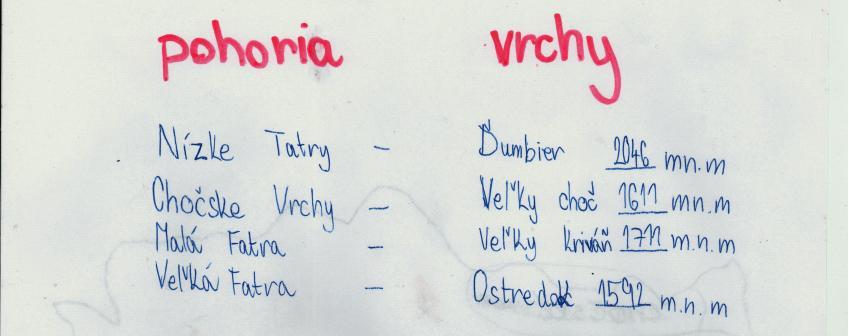 pohoria vrchy
Nízke Tatry - Ďumbier 2046 mn.m
Chočske Vrchy - Veľky choč 1611 mn.m
Malá Fatra - Veľky kriváň 1711 m.n.m
Veľká Fatra - Ostredok 1592 m.n.m